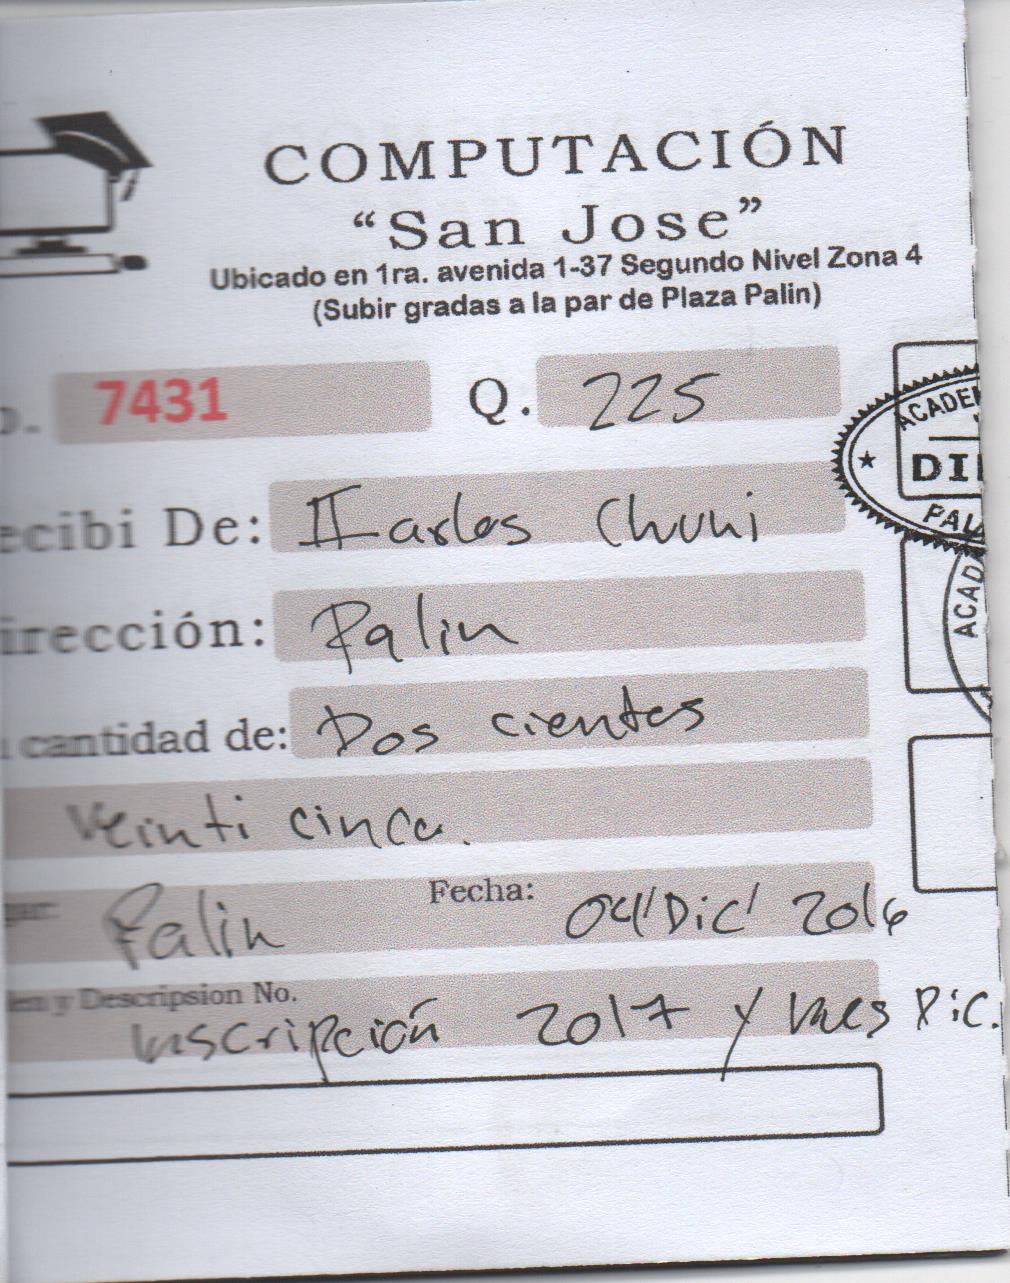 COMPUTACIÓN
“San Jose”
Ubicado en 1ra. avenida 1-37 Segundo Nivel Zona 4
(Subir gradas a la par de Plaza Palin)
o. 7431 Q. 225
ecibi De: Carlos Chuni
irección: Palin
cantidad de: Dos cientos
Veinti cinco.
gar: Palin Fecha: 04/Dic/2016
den y Descripsion No.
Inscripción 2017 y mes Dic.
ACADE
DI
PAL
ACAD